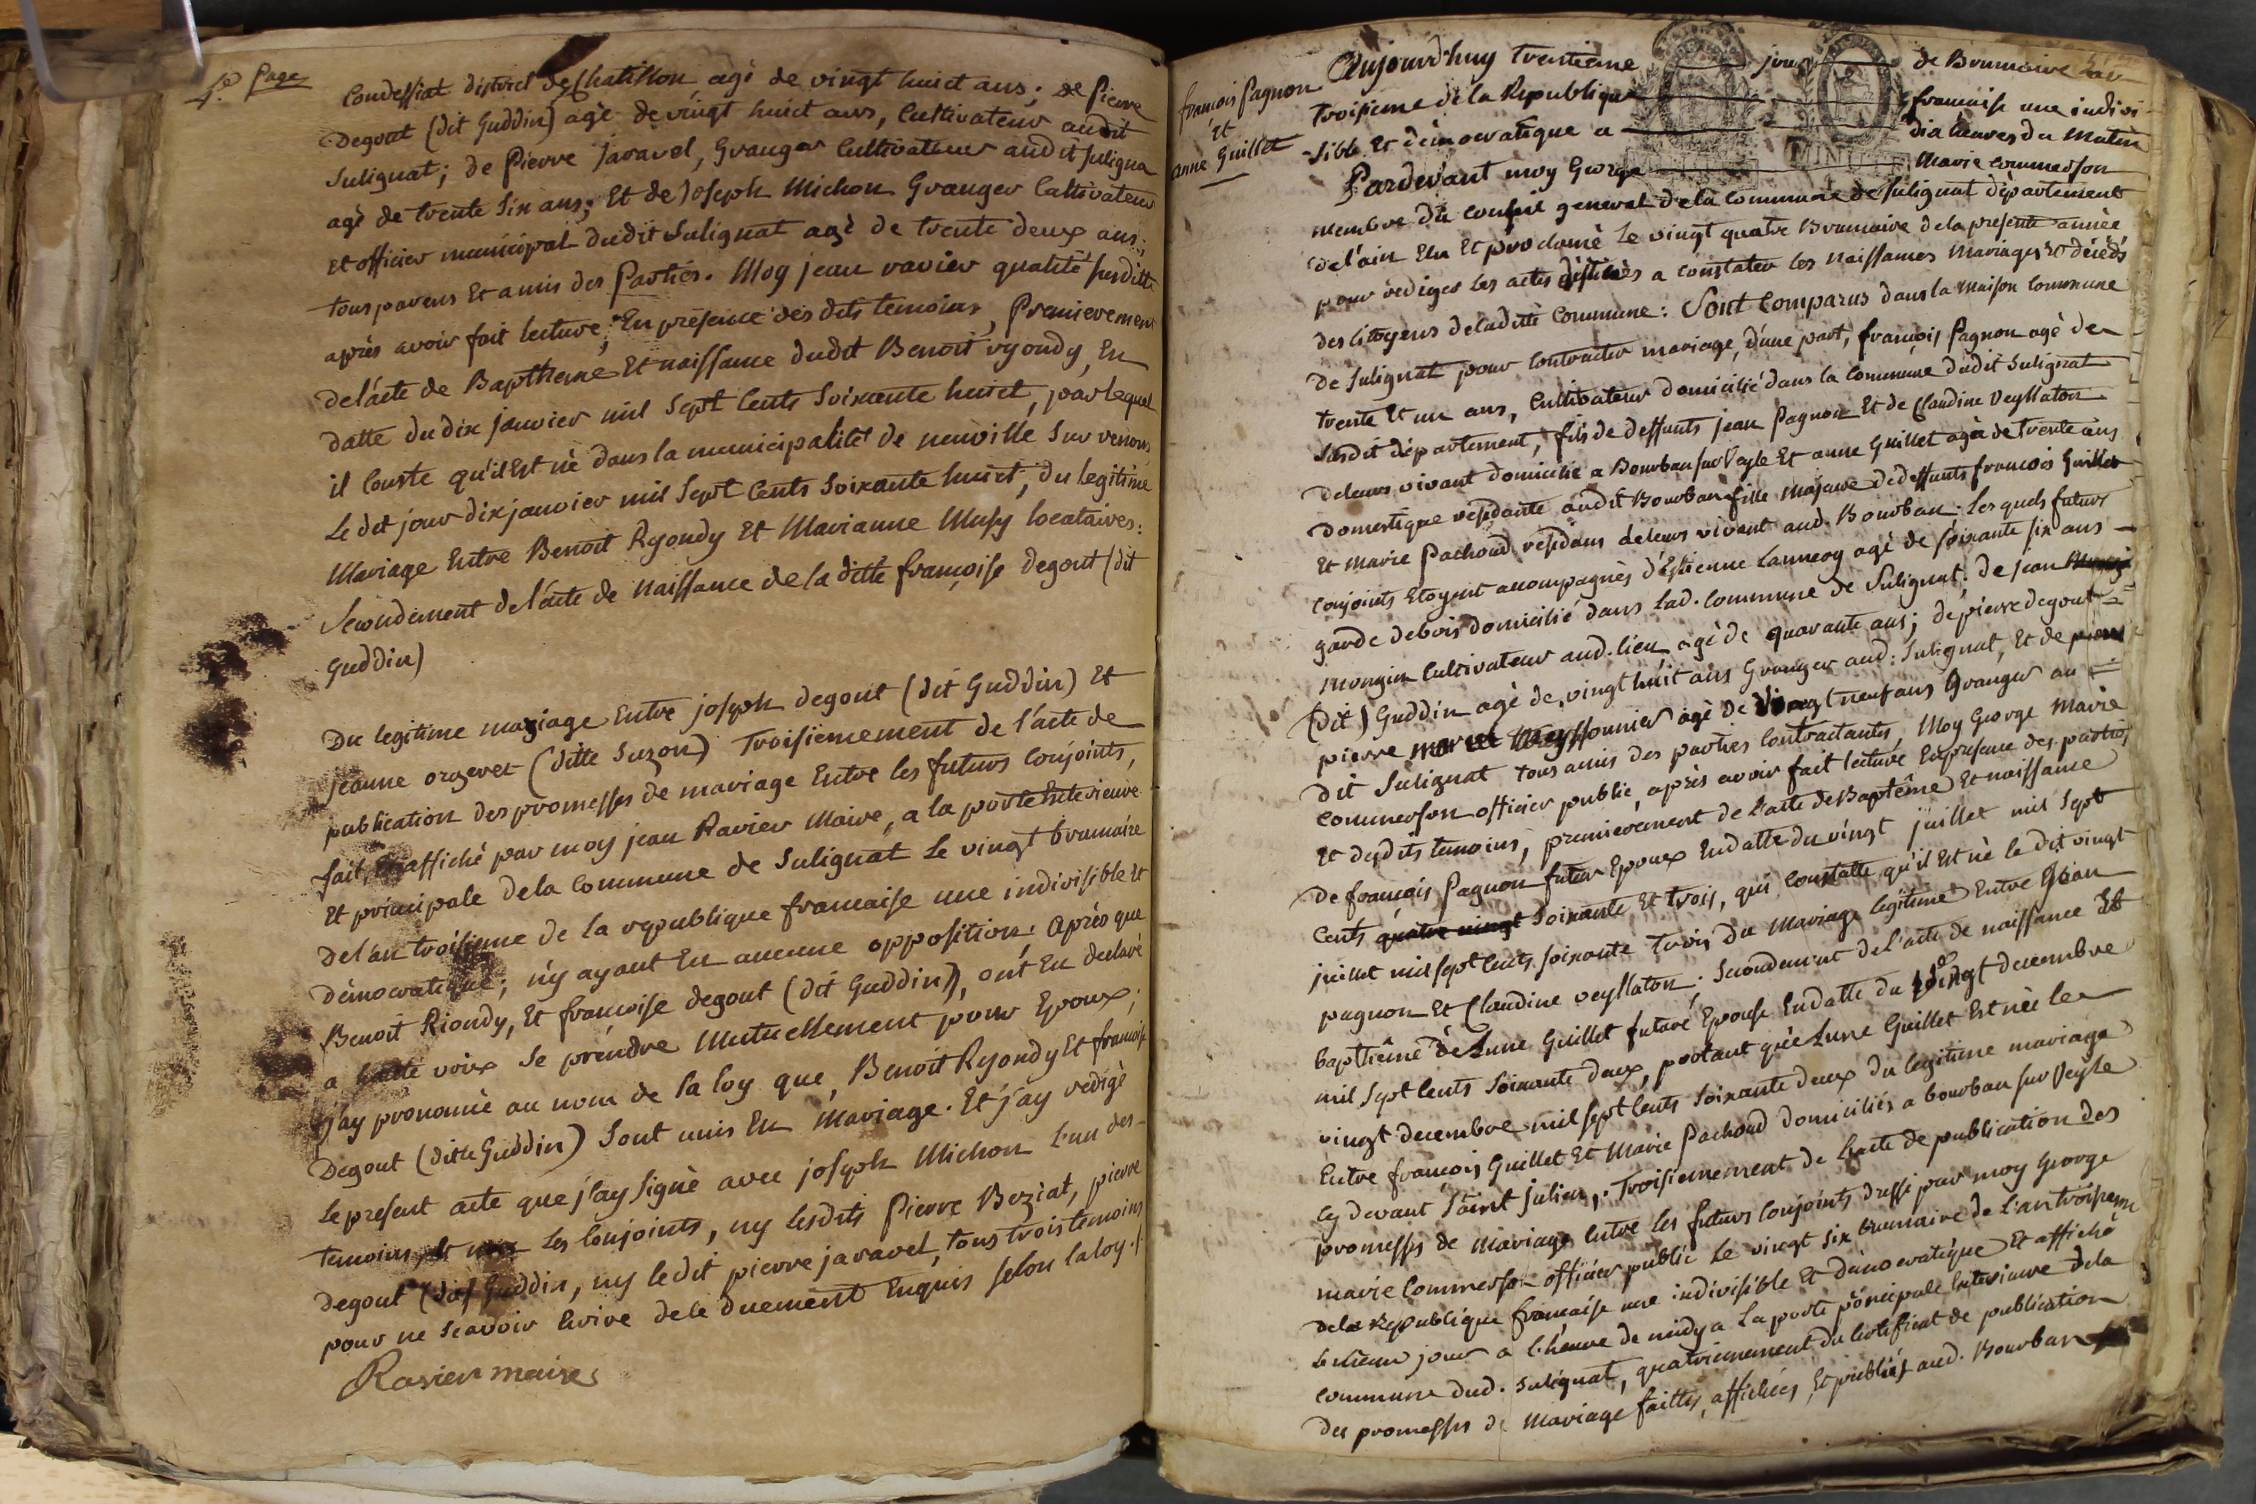 4.e Page
Condessiat district de Chatillon, agé de vingt huict ans; de Pierre
Degout (dit Guddin) agé de vingt huict ans, Cultivateur audit
Sulignat; de Pierre javavel, Granger Cultivateur audit suligna
agé de trente six ans; Et de Joseph Michon Granger Cultivateur
et officier municipal dudit Sulignat agé de trente deux ans;
tous parens Et amis des Parties. Moy jean ravier qualité susditte
après avoir fait lecture; En présence des dits temoins, Premierement
de l'acte de Baptheme Et naissance dudit Benoit ryondy, En
datte du dix janvier mil sept Cents Soixante huict, par lequel
il Conste qu'il Est né dans la municipalité de neuville sur renom
Le dit jour dix janvier mil Sept Cents Soixante huict, du legitime
Mariage Entre Benoit Ryondy Et Marianne Musy locataires:
Secondement de l'acte de Naissance de la ditte françoise Degout (dit
Guddin)
Du legitime mariage Entre joseph Degout (dit Guddin) Et
jeanne (ditte Suzon) Troisiemement de l'acte de
publication des promesses de mariage Entre les futurs Conjoints,
fait, affiché par moy jean Ravier Maire, a la porte Exterieure
Et principale de la Commune de Sulignat Le vingt brumaire
De l'an troisieme de la republique francaise une indivisible Et
Démocratique; n'y ayant Eu aucune opposition. Après que
Benoit Riondy, Et francoise degout (dit Guddin), ont Eu declaré
a haute voix se prendre Mutuellement pour Epoux;
J'ay prononcé au nom de la loy que, Benoit Ryondy Et francoise
Degout (ditte Guddin) Sont unis En Mariage. Et j'ay redigé
Le present acte que j'ay signé avec joseph Michon L'un des
temoins, Les Conjoints, ny lesdits Pierre Beziat, pierre
Degout (dit Guddin, ny ledit pierre javavel, tous trois temoins
pour ne scavoir Ecrire de le duement Enquis selon la loy./.
Ravier maire
françois Pagnon
Et
anne Guillet
Aujourd'huy trentieme jour de Brumaire l'an
Troisieme de la Republique francaise une indivi-
-sible Et démocratique a dix heures du Matin
Pardevant moy George Marie Commerson
membre du conseil general de la commune de Sulignat département
de l'ain Elu Et proclamé Le vingt quatre Brumaire de la presente année
pour rediger les actes destinés a constater les naissances mariages Et décès
des Citoyens de ladite Commune: Sont Comparus dans la maison Commune
De Sulignat pour contracter mariage, d'une part, françois Pagnon agé de
trente Et un ans, Cultivateur domicilié dans la commune dudit Sulignat
susdit département, fils de deffunts jean Pagnon Et de Claudine Veyllaton
de leurs vivant domicilie a Bourban sur Veyle Et anne Guillet agée de trente ans
Domestique residante audit Bourban fille Majeure de deffunts francois Guillet
Et Marie Pachoud résidans de leurs vivant aud. Bourban. Les quels futurs
Conjoints Etoyent accompagnés d'Estienne Lanneoy agé de soixante six ans
garde de bois domicilié dans lad. commune de Sulignat; de jean
Mongin Cultivateur aud. lieu agé de quarante ans; de pierre degout
(dit) Guddin agé de vingt huit ans Granger aud: Sulignat, Et de pierre
pierre Meyssonnier agé de vingt neuf ans Granger au
dit Sulignat tous amis des parties Contractantes, Moy George Marie
Commerson officier public, après avoir fait lecture En presence des parties
Et desdits temoins, premierement de l'acte de Baptême Et naissance
De francois Pagnon futur Epoux En datte du vingt juillet mil sept
Cents quatre vingt Soixante Et trois, qui constatte qu'il Est né le dit vingt
juillet mil sept Cents soixante trois du Mariage legitime Entre Jean
pagnon Et Claudine veyllaton; Secondement de l'acte de naissance Et
baptheme de Anne Guillet future Epouse En datte du vingt decembre
mil Sept Cents Soixante deux, portant que Anne Guillet Est née le
vingt decembre mil sept Cents Soixante deux du legitime mariage
Entre françois Guillet Et Marie Pachoud domiciliés a bourban sur Veyle
cy devant Saint julien,. Troisiemement de l'acte de publication des
promesses de Mariage Entre les futurs Conjoints dressé par moy George
marie Commerson officier public Le vingt six brumaire de L'an troisieme
de la Republique francaise une indivisible Et démocratique Et affiché
Le meme jour a l'heure de midy a La porte principale Exterieure de la
commune dud. Sulignat, quatriemement du Certificat de publication
Des promesses de Mariage faittes, affichées, Et publiées aud. Bourban